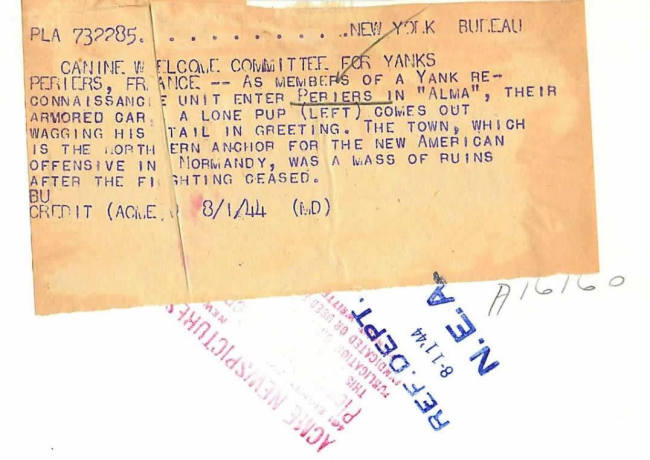 PLA 732285. . . . . . . . . . .NEW YORK BUREAU
CANINE WELCOME COMMITTEE FOR YANKS
PERIERS, FRANCE -- AS MEMBERS OF A YANK RE-
CONNAISSANCE UNIT ENTER PERIERS IN "ALMA", THEIR
ARMORED CAR, A LONE PUP (LEFT) COMES OUT
WAGGING HIS TAIL IN GREETING. THE TOWN, WHICH
IS THE NORTHERN ANCHOR FOR THE NEW AMERICAN
OFFENSIVE IN NORMANDY, WAS A MASS OF RUINS
AFTER THE FIGHTING CEASED.
BU
CREDIT (ACME) 8/1/44 (MD)
A16160
REF. DEPT.
8-11'44
N.E.A
ACME NEWSPICTURES
THIS
PUBLICATION
SYNDICATED OR USED
WRITTEN